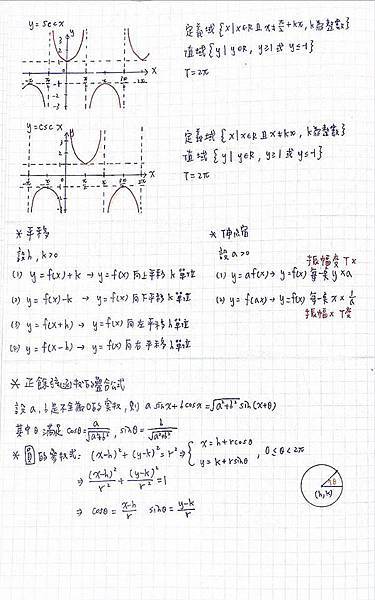 y = sec x
定義域 {x|x∈R 且 x≠π/2+kπ, k為整數}
值域 {y|y∈R, y≥1 或 y≤-1}
T=2π
y = csc x
定義域 {x|x∈R 且 x≠kπ, k為整數}
值域 {y|y∈R, y≥1 或 y≤-1}
T=2π
※平移
設h, k>0
(1) y=f(x)+k → y=f(x) 向上平移 k 單位
(2) y=f(x)-k → y=f(x) 向下平移 k 單位
(3) y=f(x+h) → y=f(x) 向左平移 h 單位
(4) y=f(x-h) → y=f(x) 向右平移 h 單位
※伸縮
設 a>0
振幅變 T×
(1) y=af(x) → y=f(x) 每一點 y×a
(2) y=f(ax) → y=f(x) 每一點 x×1/a
振幅× T變
※正餘弦函數的疊合式
設 a, b 是不全為0的實數, 則 a sinx + b cosx = √a²+b² sin(x+θ)
其中 θ 滿足 cosθ = a/√a²+b², sinθ = b/√a²+b²
※圓的參數式: (x-h)²+(y-k)²=r² ⇒ { x=h+rcosθ
y=k+rsinθ , 0≤θ<2π
⇒ (x-h)²/r² + (y-k)²/r² = 1
⇒ cosθ = x-h/r sinθ = y-k/r
r
θ
(h,k)